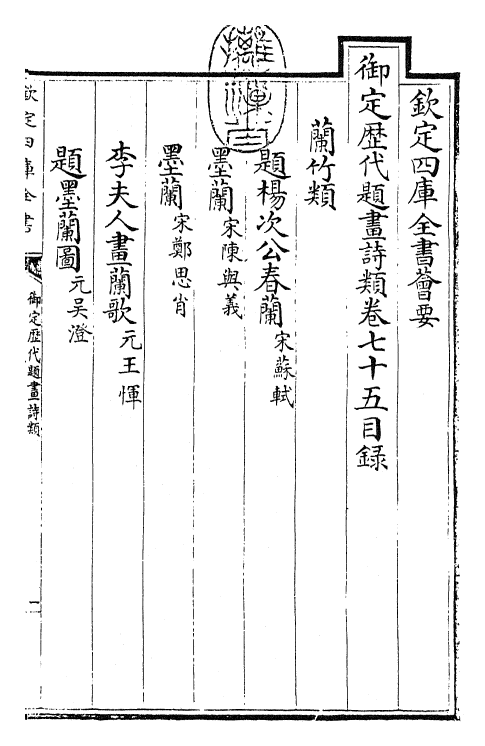 欽定四庫全書薈要
御定歴代題畫詩類卷七十五目録
蘭竹類
題楊次公春蘭宋蘇軾
墨蘭宋陳與義
墨蘭宋鄭思肖
李夫人畫蘭歌元王惲
題墨蘭圖元吳澄
欽定四庫全書
御定歴代題畫詩類
一